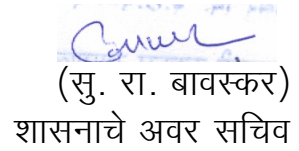 (सु. रा. बावस्कर)
शासनाचे अवर सचिव